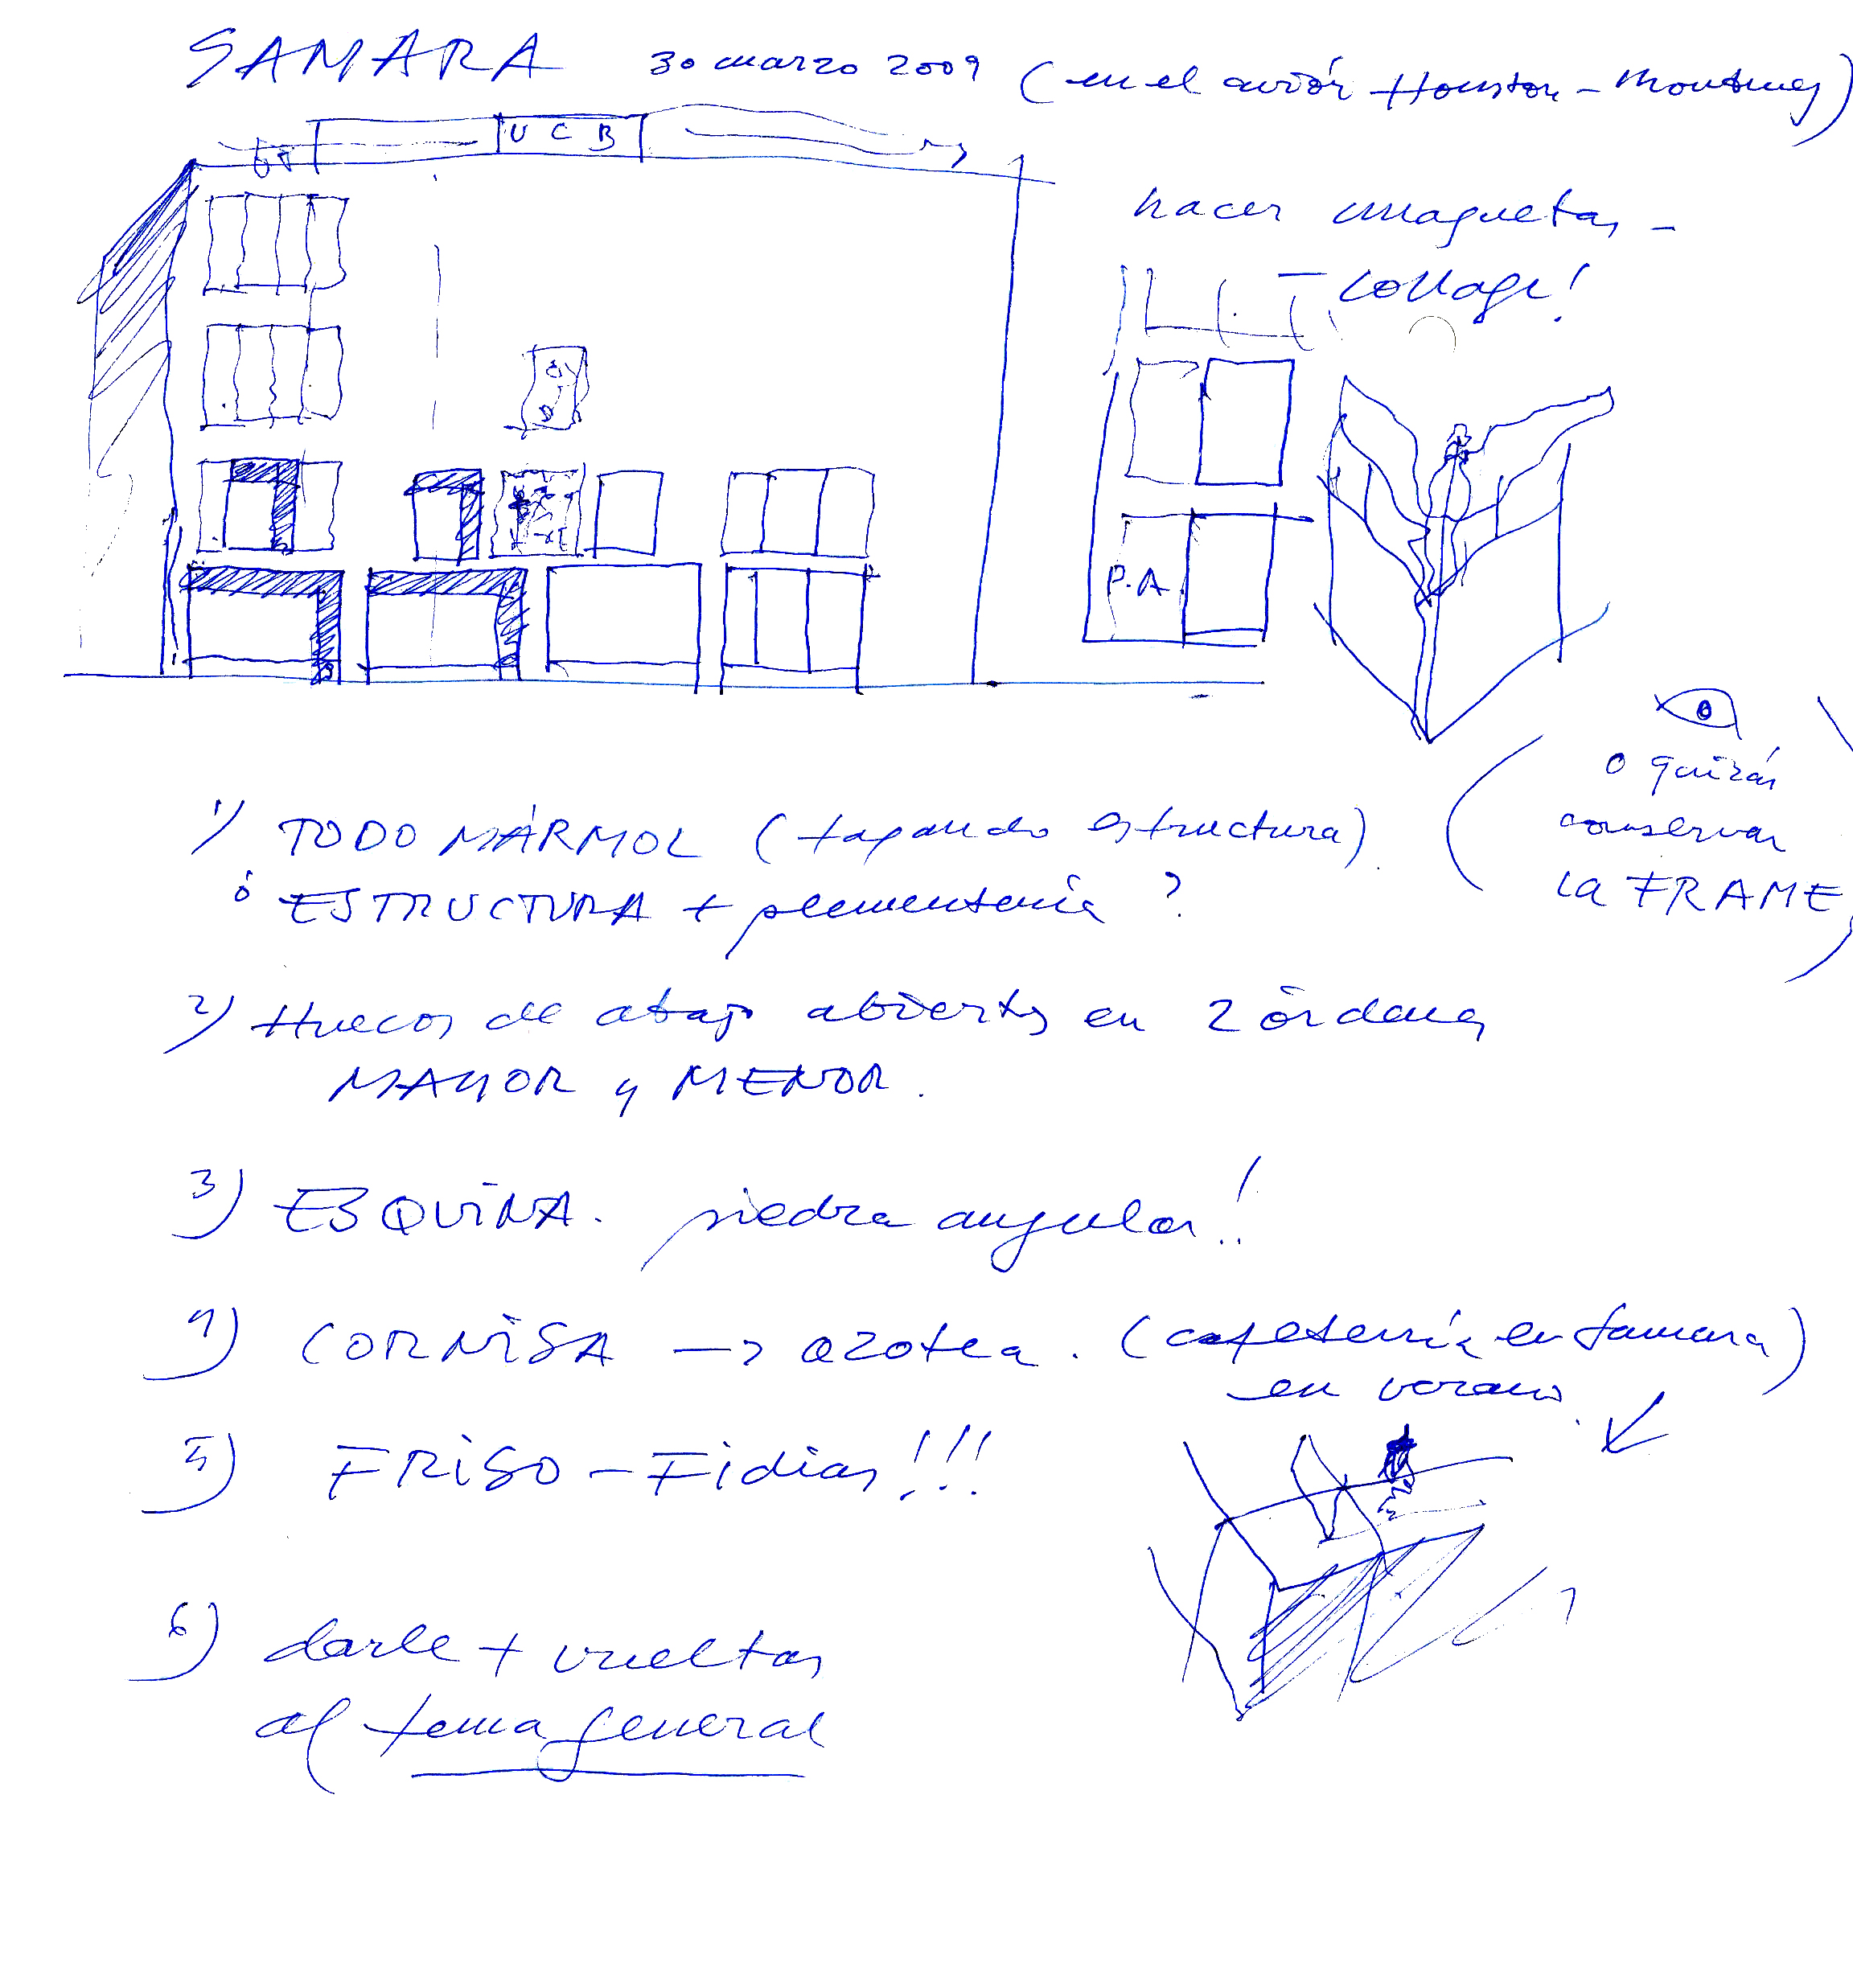 SAMARA 30 marzo 2009 (en el avión Houston - Monterrey)
U C B
hacer maquetas -
- collage!
P.A.
o quizás
conservar
la FRAME
1) TODO MÁRMOL (tapando estructura)
ó ESTRUCTURA + plementería ?
2) Huecos de abajo abiertos en 2 órdenes
MAYOR y MENOR.
3) ESQUINA. piedra angular!!
4) CORNISA -> azotea. (cafetería en Samara)
en verano
5) FRISO - Fidias!!!
6) darle + vueltas
al tema general